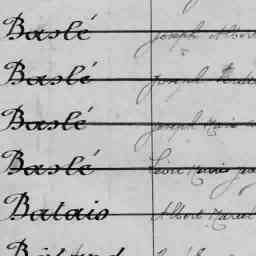 Baslé Joseph Albert
Baslé Joseph
Baslé Joseph Marie
Baslé Léon Marie
Balais Albert Marcel